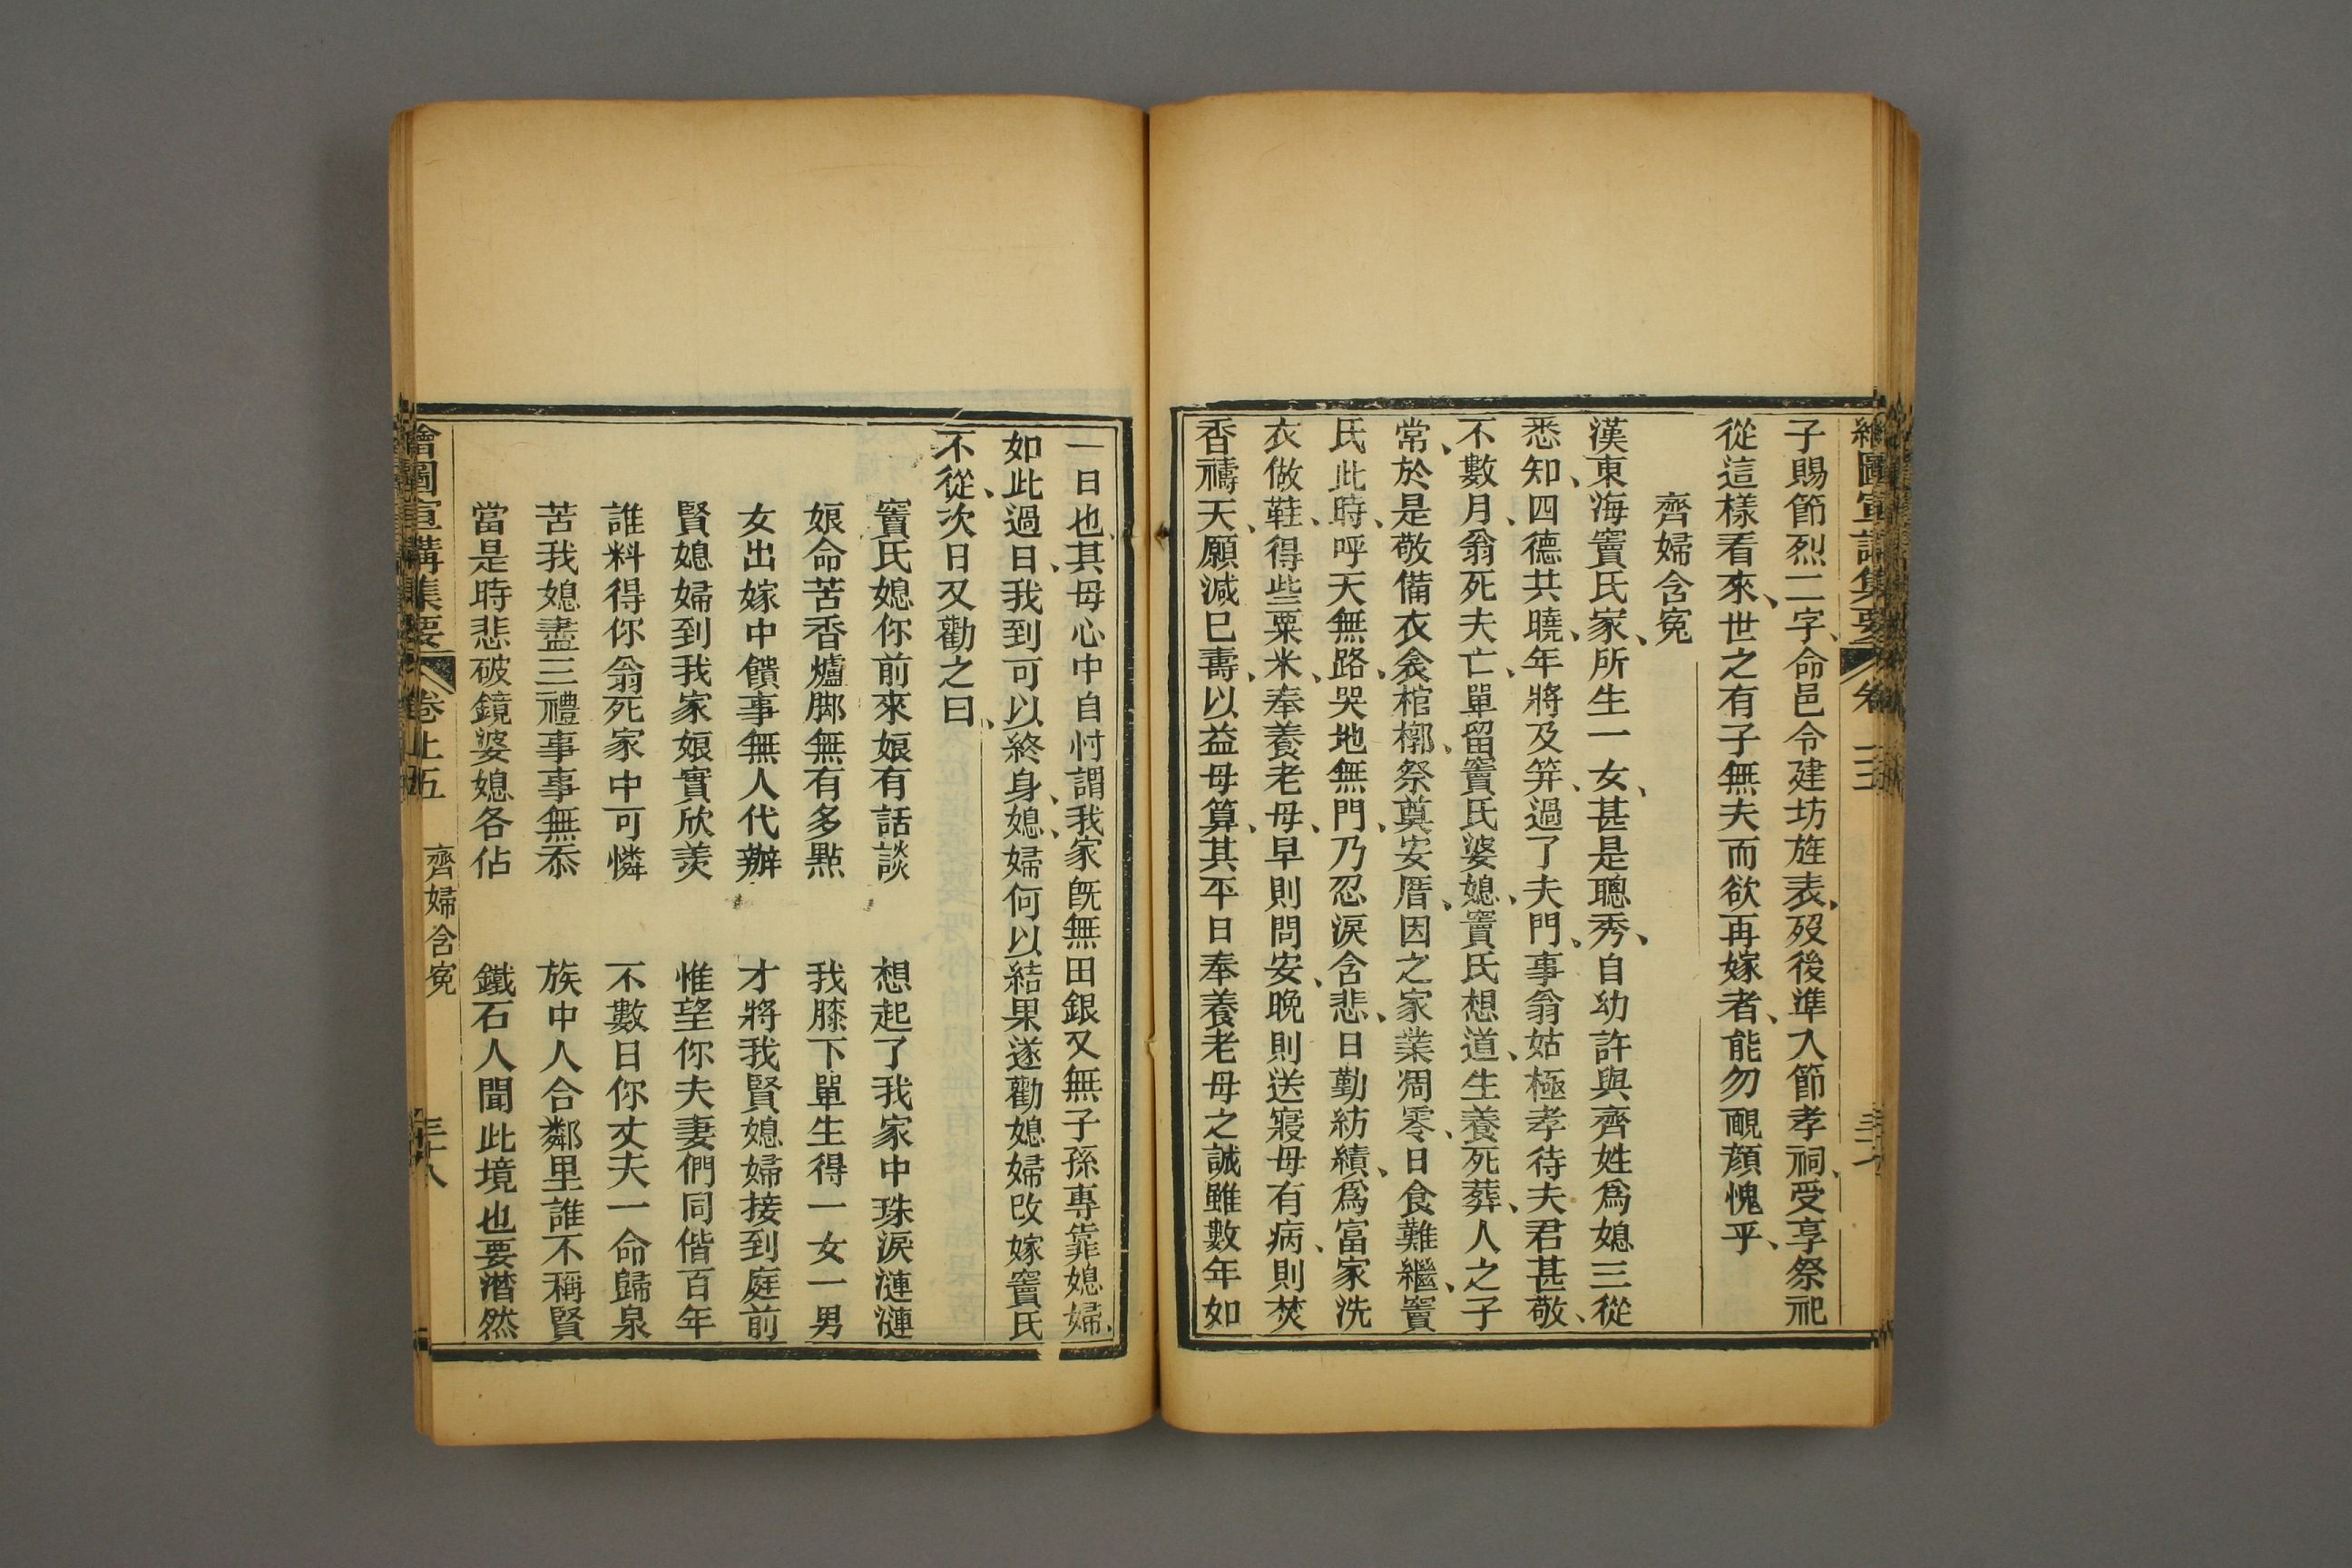 子賜節烈二字、命邑令建坊旌表、歿後準入節孝祠、受享祭祀
從這樣看來、世之有子無夫而欲再嫁者、能勿靦顔愧乎、
齊婦含寃
漢東海竇氏家、所生一女、甚是聰秀、自幼許與齊姓爲媳三從
悉知、四德共曉、年將及笄、過了夫門、事翁姑極孝待夫君甚敬、
不數月、翁死夫亡、單留竇氏婆媳、竇氏想道、生養死葬、人之子
常、於是敬備衣衾棺槨、祭奠安厝、因之家業凋零、日食難繼、竇
氏此時、呼天無路、哭地無門、乃忍淚含悲、日勤紡績、爲富家洗
衣做鞋、得些粟米、奉養老母、早則問安、晚則送寢母有病、則焚
香禱天、願減己壽、以益母算、其平日奉養老母之誠雖數年如
一日也、其母心中自忖謂我家旣無田銀又無子孫專靠媳婦、
如此過日、我到可以終身、媳婦何以結果遂勸媳婦改嫁竇氏
不從、次日又勸之曰、
竇氏媳你前來娘有話談　想起了我家中珠淚漣漣
娘命苦香爐脚無有多點　我膝下單生得一女一男
女出嫁中饋事無人代辦　才將我賢媳婦接到庭前
賢媳婦到我家娘實欣羨　惟望你夫妻們同偕百年
誰料得你翁死家中可憐　不數日你丈夫一命歸泉
苦我媳盡三禮事事無忝　族中人合鄰里誰不稱賢
當是時悲破鏡婆媳各佔　鐵石人聞此境也要潸然
繪圖宣講集要　卷上五　齊婦含寃　三十八